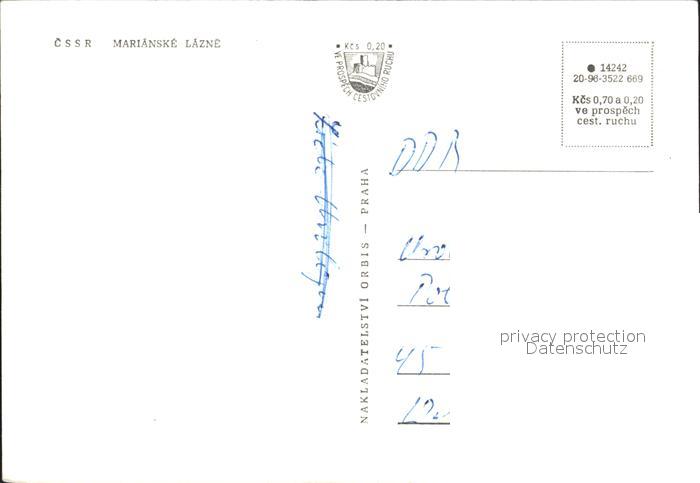 ČSSR MARIÁNSKÉ LÁZNĚ
Kčs 0,20
VE PROSPĚCH CESTOVNÍHO RUCHU
14242
20-96-3522 669
Kčs 0,70 a 0,20
ve prospěch
cest. ruchu
NAKLADATELSTVÍ ORBIS — PRAHA
DDR
45
privacy protection
Datenschutz